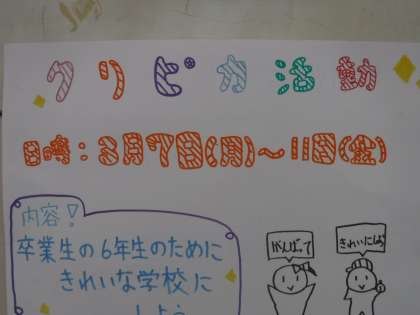 クリピカ活動
日時：3月7日(月)～11日(金)
内容！
卒業生の6年生のために
きれいな学校に
しよう
がんばって
きれいにしよう